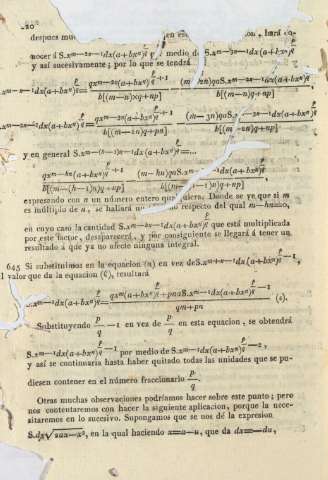 20
despues mu en es on, hará co-
nocer á S.x^{m-2n-1}dx(a+bx^n)^{p/q} por medio de S.x^{m-3n-1}dx(a+bx^n)^{p/q}
y así sucesivamente; por lo que se tendrá
x^{m-n-1}dx(a+bx^n)^{p/q}= qx^{m-2n}(a+bx^n)^{p/q+1} (m-2n)qaS.x^{m-2n-1}dx(a+bx^n)^{p/q}
b[(m-n)q+np] b[(m-n)q+np]
x^{m-2n-1}dx(a+bx^n)^{p/q}= qx^{m-3n}(a+bx^n)^{p/q+1} (m-3n)qaS.x^{m-3n-1}dx(a+bx^n)^{p/q}
b[(m-2n)q+np] b[(m-2n)q+np]
y en general S.x^{m-(h-1)n-1}dx(a+bx^n)^{p/q}=...
qx^{m-hn}(a+bx^n)^{p/q+1} (m-hn)qaS.x^{m-hn-1}dx(a+bx^n)^{p/q}
b[(m-(h-1)n)q+np] b[(m-(h-1)n)q+np]
expresando con n un número entero qualquiera. Donde se ve que si m
es múltiplo de n, se hallará un respecto del qual m-hn=0,
en cuyo caso la cantidad S.x^{m-hn-1}dx(a+bx^n)^{p/q} que está multiplicada
por este factor, desaparecerá, y por consiguiente se llegará á tener un
resultado á que ya no afecte ninguna integral.
645 Si substituimos en la equacion (a) en vez de S.x^{m+n-1}dx(a+bx^n)^{p/q-1},
l valor que da la equacion (C), resultará
S.x^{m-1}dx(a+bx^n)^{p/q}= qx^m(a+bx^n)^{p/q}+pnaS.x^{m-1}dx(a+bx^n)^{p/q-1} (c).
qm+pn
Substituyendo p/q-1 en vez de p/q en esta equacion, se obtendrá
S.x^{m-1}dx(a+bx^n)^{p/q-1} por medio de S.x^{m-1}dx(a+bx^n)^{p/q-2},
y así se continuaria hasta haber quitado todas las unidades que se pu-
diesen contener en el número fraccionario p/q.
Otras muchas observaciones podríamos hacer sobre este punto; pero
nos contentaremos con hacer la siguiente aplicacion, porque la nece-
sitaremos en lo sucesivo. Supongamos que se nos dé la expresion
S.dx√2ax-x², en la qual haciendo x=a-u, que da dx=-du,